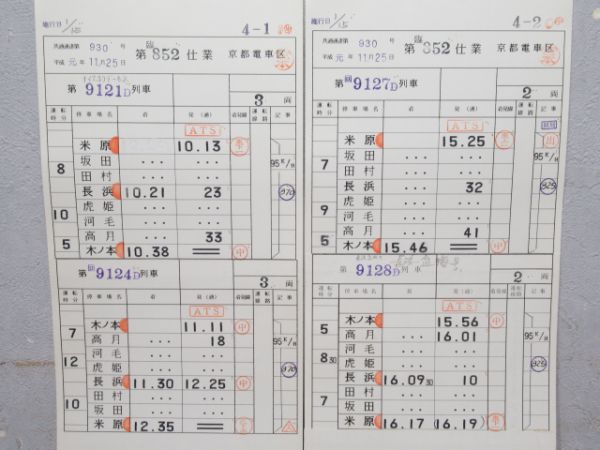 施行日 1/15
4-1
共通通達第 930 号
平成 元年 11月25日
臨
第 852 仕業 京都電車区
第 9121D 列車
3 両
運転時分 停車場名 着 発(通) 着発線 運転線路 記事
ATS
米原 10.13
坂田 ・・・ ・・・ 95K/H
8
田村 ・・・ ・・・
長浜 10.21 23
虎姫 ・・・ ・・・
10
河毛 ・・・ ・・・
高月 ・・・ 33
5
木ノ本 10.38 ═ 中
第 回 9124D 列車
3 両
運転時分 停車場名 着 発(通) 着発線 運転線路 記事
ATS
木ノ本 11.11 中
7
高月 ・・・ 18 95K/H
河毛 ・・・ ・・・
12
虎姫 ・・・ ・・・
長浜 11.30 12.25 中
田村 ・・・ ・・・
10
坂田 ・・・ ・・・
米原 12.35 ═
施行日 1/15
4-2
共通通達第 930 号
平成 元年 11月25日
臨
第 852 仕業 京都電車区
第 回 9127D 列車
2 両
運転時分 停車場名 着 発(通) 着発線 運転線路 記事
ATS
米原 15.25 出
坂田 ・・・ ・・・ 95K/H
7
田村 ・・・ ・・・
長浜 ・・・ 32
虎姫 ・・・ ・・・
9
河毛 ・・・ ・・・
高月 ・・・ 41
5
木ノ本 15.46 ═ 中
第 9128D 列車
2 両
運転時分 停車場名 着 発(通) 着発線 運転線路 記事
ATS
木ノ本 15.56 中
5
高月 ・・・ 16.01 95K/H
河毛 ・・・ ・・・
8 30
虎姫 ・・・ ・・・
長浜 16.09 30 10
田村 ・・・ ・・・
7
坂田 ・・・ ・・・
米原 16.17 (16.19)